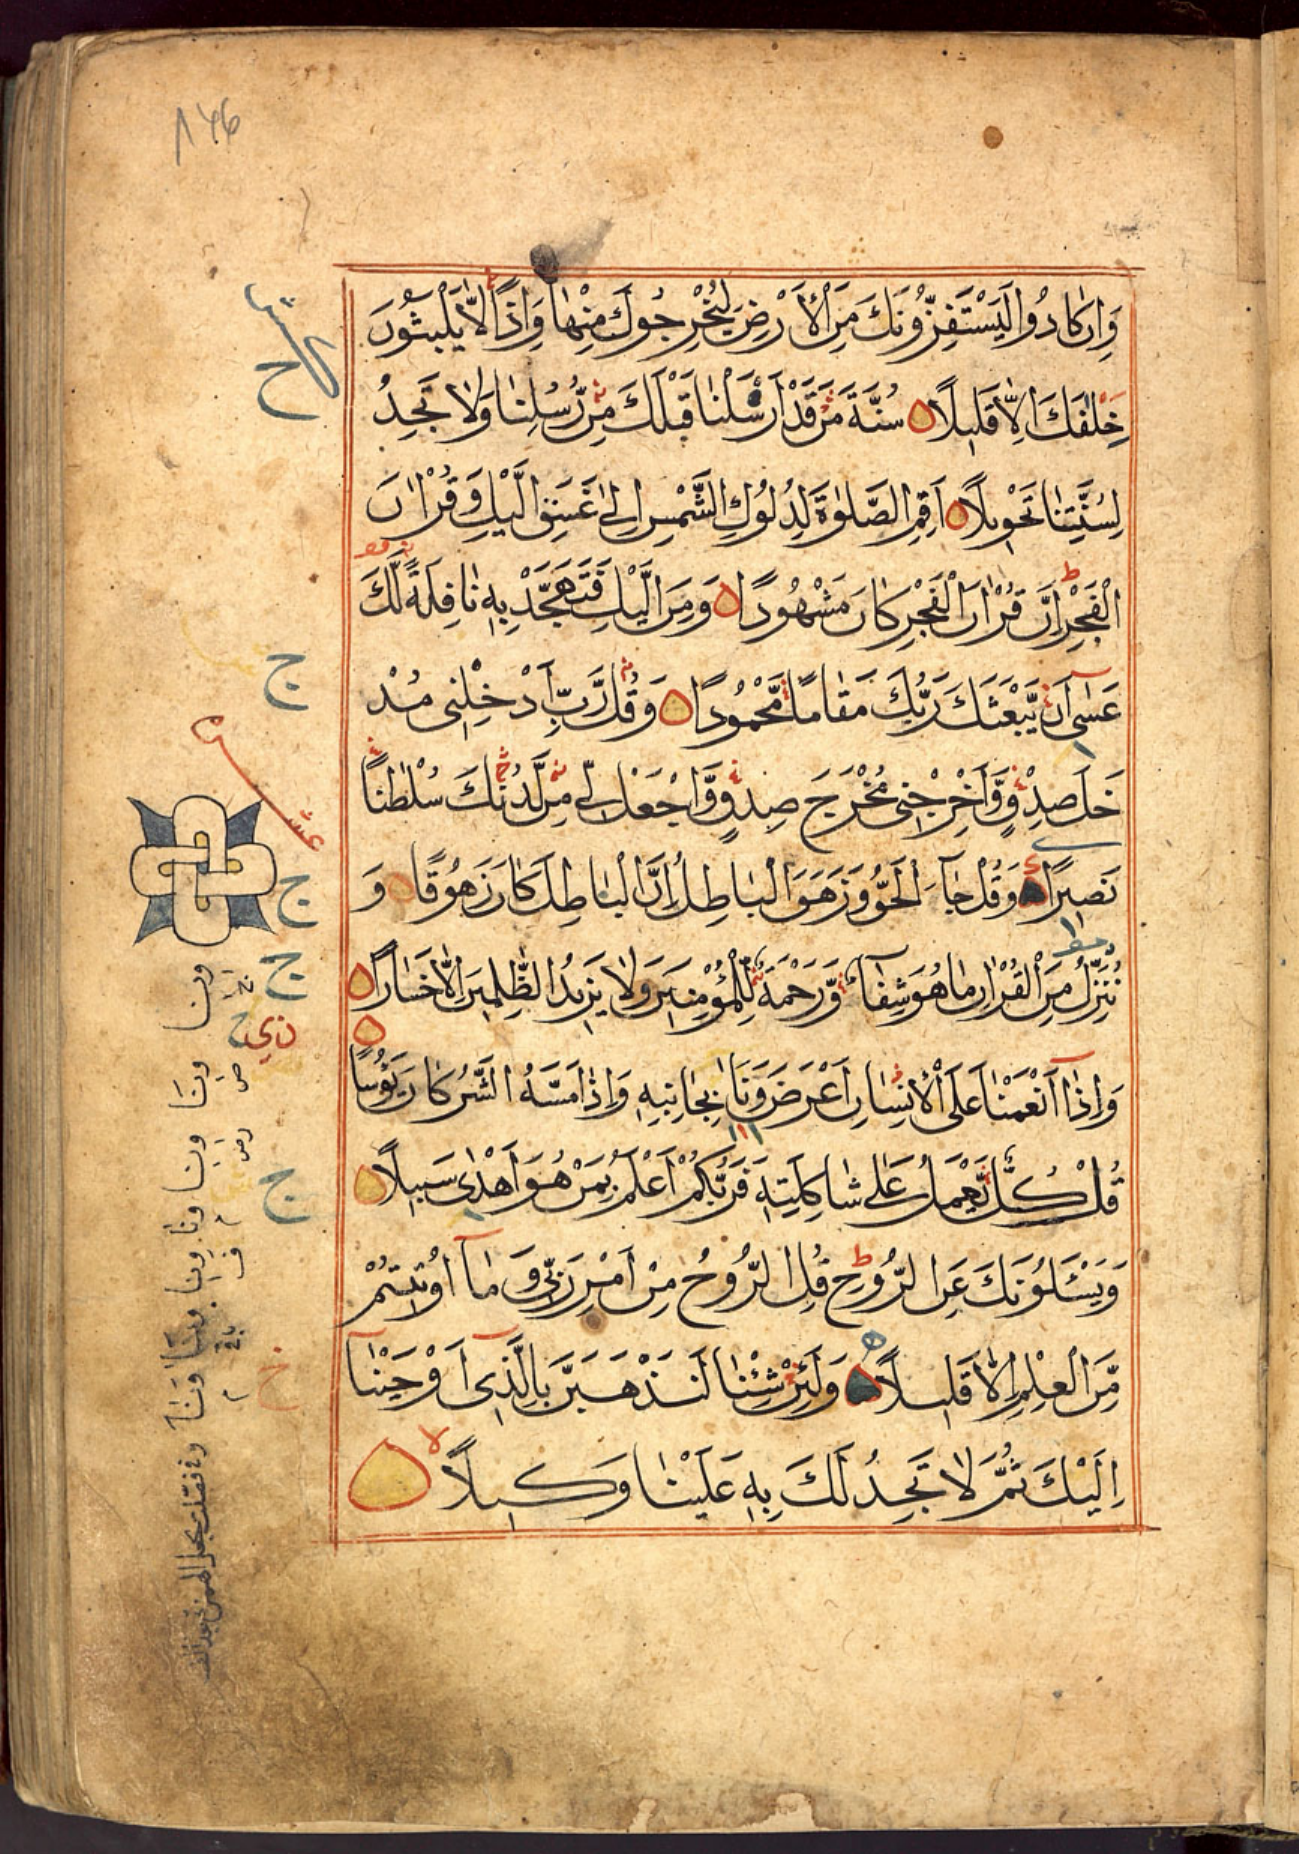 وَاِنْ كَادُوا لَيَسْتَفِزُّونَكَ مِنَ الْاَرْضِ لِيُخْرِجُوكَ مِنْهَا وَاِذًا لَّا يَلْبَثُونَ
خِلٰفَكَ اِلَّا قَلِيلًا سُنَّةَ مَنْ قَدْ اَرْسَلْنَا قَبْلَكَ مِنْ رُّسُلِنَا وَلَا تَجِدُ
لِسُنَّتِنَا تَحْوِيلًا اَقِمِ الصَّلٰوةَ لِدُلُوكِ الشَّمْسِ اِلٰى غَسَقِ الَّيْلِ وَقُرْاٰنَ
الْفَجْرِ اِنَّ قُرْاٰنَ الْفَجْرِ كَانَ مَشْهُودًا وَمِنَ الَّيْلِ فَتَهَجَّدْ بِهٖ نَافِلَةً لَّكَ
عَسٰٓى اَنْ يَّبْعَثَكَ رَبُّكَ مَقَامًا مَّحْمُودًا وَقُلْ رَّبِّ اَدْخِلْنِى مُدْ
خَلَ صِدْقٍ وَّاَخْرِجْنِى مُخْرَجَ صِدْقٍ وَّاجْعَلْ لِّى مِنْ لَّدُنْكَ سُلْطٰنًا
نَصِيرًا وَقُلْ جَآءَ الْحَقُّ وَزَهَقَ الْبَاطِلُ اِنَّ الْبَاطِلَ كَانَ زَهُوقًا وَ
نُنَزِّلُ مِنَ الْقُرْاٰنِ مَا هُوَ شِفَآءٌ وَّرَحْمَةٌ لِّلْمُؤْمِنِينَ وَلَا يَزِيدُ الظّٰلِمِينَ اِلَّا خَسَارًا
وَاِذَآ اَنْعَمْنَا عَلَى الْاِنْسَانِ اَعْرَضَ وَنَاٰ بِجَانِبِهٖ وَاِذَا مَسَّهُ الشَّرُّ كَانَ يَؤُسًا
قُلْ كُلٌّ يَّعْمَلُ عَلٰى شَاكِلَتِهٖ فَرَبُّكُمْ اَعْلَمُ بِمَنْ هُوَ اَهْدٰى سَبِيلًا
وَيَسْـَٔلُونَكَ عَنِ الرُّوحِ قُلِ الرُّوحُ مِنْ اَمْرِ رَبِّى وَمَآ اُوتِيتُمْ
مِّنَ الْعِلْمِ اِلَّا قَلِيلًا وَلَئِنْ شِئْنَا لَنَذْهَبَنَّ بِالَّذِىٓ اَوْحَيْنَآ
اِلَيْكَ ثُمَّ لَا تَجِدُ لَكَ بِهٖ عَلَيْنَا وَكِيلًا
ج
ج
ج
ج